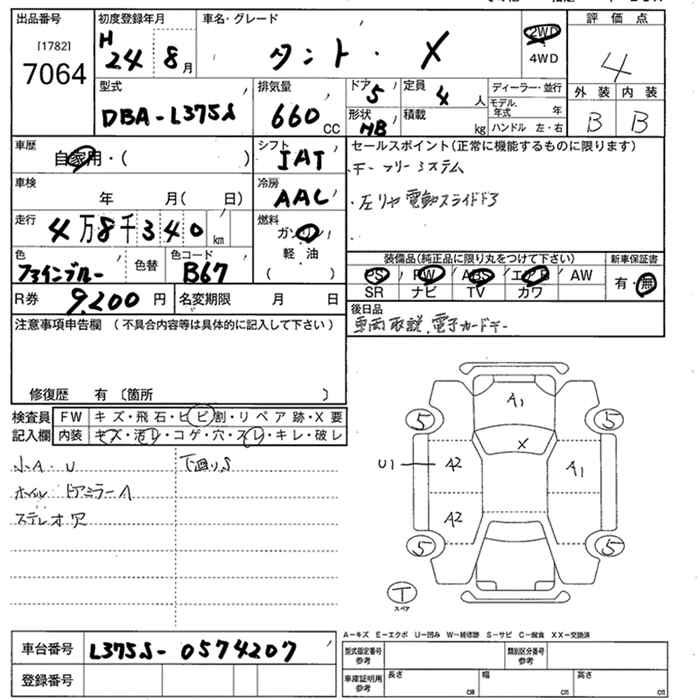 出品番号 初度登録年月 車名・グレード 評価点
[1782]
7064
H24 8月 タント・X 2WD 4WD 4
型式 排気量 ドア 定員 ディーラー・並行 外装 内装
DBA-L375S 660CC 5 4人 モデル年式 年 B B
形状 積載 kg ハンドル 左・右
HB
車歴 シフト セールスポイント(正常に機能するものに限ります)
自家用・( ) IAT
・キーフリーシステム
車検 年 月( 日) 冷房 AAC
・左リヤ電動スライドドア
走行 4万8千340km 燃料 ガソリン
・
軽油
( )
色 ファインブルー 色替 色コード B67
装備品(純正品に限り丸をつけて下さい) 新車保証書
PS PW ABS エアB AW 有・無
SR ナビ TV カワ
R券 9,200円 名変期限 月 日
後日品
車両取説、電子カードキー
注意事項申告欄 (不具合内容等は具体的に記入して下さい)
修復歴 有 〔箇所 〕
検査員 FW キズ・飛石・ヒビ割・リペア跡・X要
記入欄 内装 キズ・汚レ・コゲ・穴・スレ・キレ・破レ
小A・U 下廻りS
ホイル ドアミラーA
ステレオ穴
A1
5 5
X
U1 A2 A1
A2
5 5
T
スペア
A-キズ E-エクボ U-凹み W-補修跡 S-サビ C-腐食 XX-交換済
車台番号 L375S-0574207
登録番号
型式指定番号 参考 類別区分番号 参考
車庫証明用 参考 長さ cm 幅 cm 高さ cm